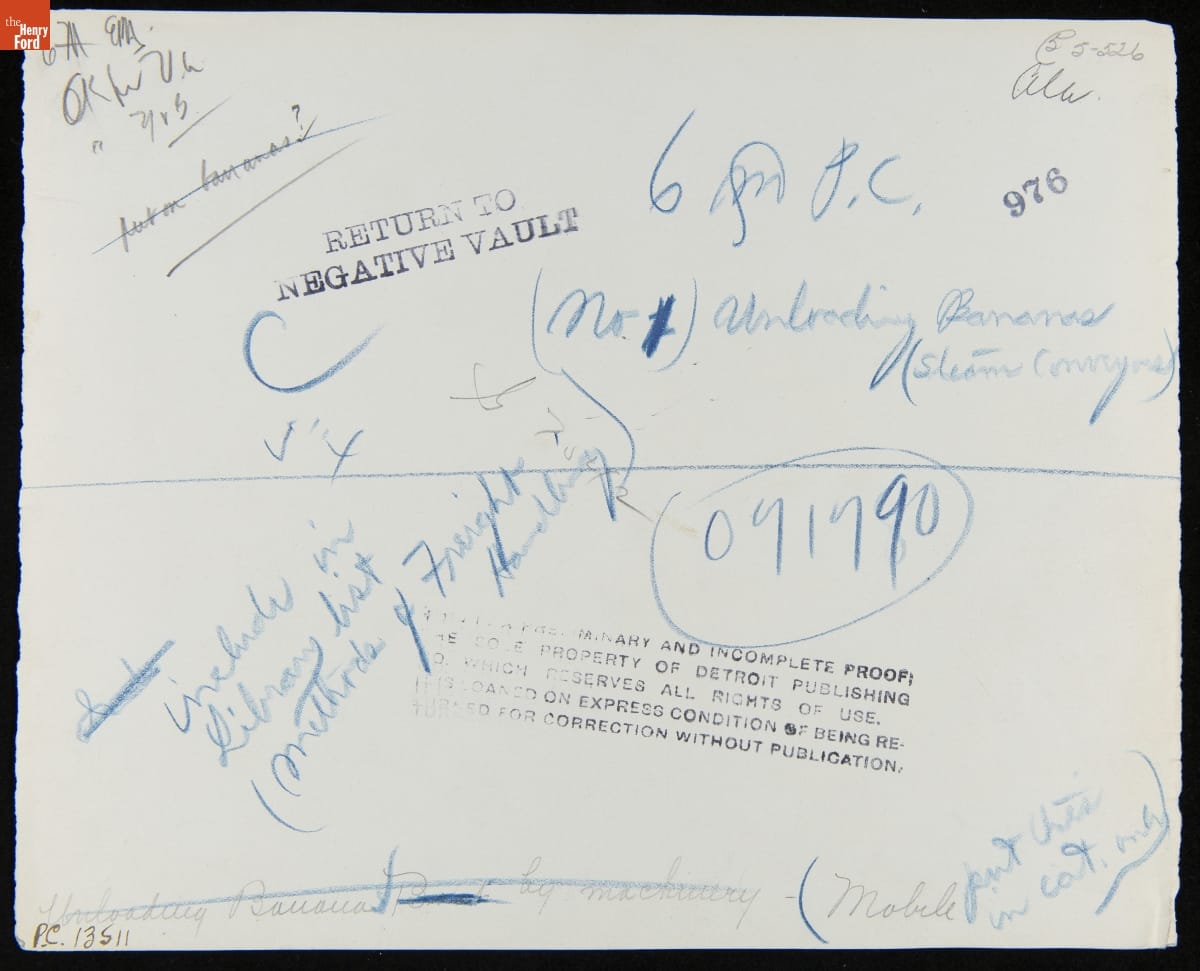 the
Henry
Ford
OK
5-526
Ala.
put on bananas?
RETURN TO
NEGATIVE VAULT
6 P.C.
976
(No 1) Unloading Bananas
(Steam Conveyors)
C
V X
071790
include in
Library list
(Methods of Freight
Handling
PRELIMINARY AND INCOMPLETE PROOF;
THE SOLE PROPERTY OF DETROIT PUBLISHING
CO. WHICH RESERVES ALL RIGHTS OF USE.
IT IS LOANED ON EXPRESS CONDITION OF BEING RE-
TURNED FOR CORRECTION WITHOUT PUBLICATION.
Unloading Banana by machinery - (Mobile
put this
in cat. only)
P.C. 13511